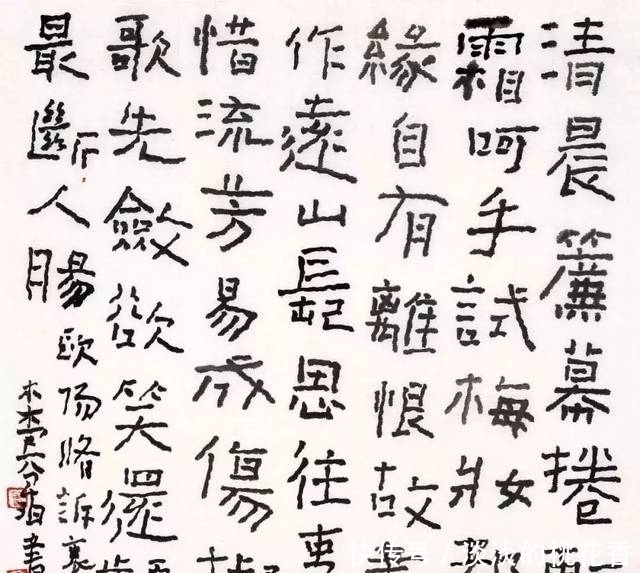 清晨簾幕捲
霜呵手試梅妝
緣自有離恨故
作遠山長思往事
惜流芳易成傷
歌先斂欲笑還
最斷人腸 歐陽脩訴衷
書
快传号/淡淡的桃花香